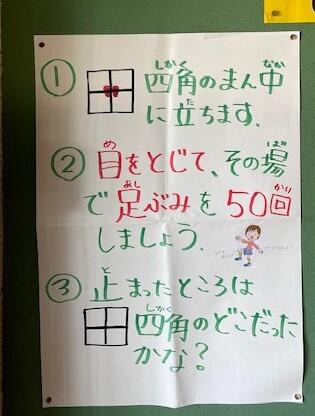 ① 四角のまん中
に立ちます.
② 目をとじて、その場
で足ぶみを50回
しましょう.
③ 止まったところは
四角のどこだった
かな?